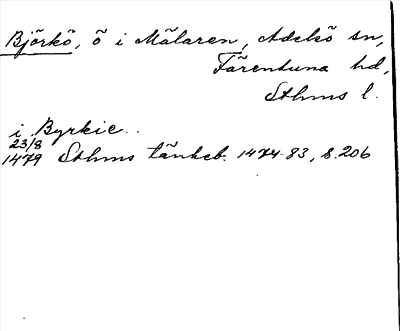 Björkö, ö i Mälaren, Adelsö sn,
Färentuna hd,
Sthms l.
i Byrkie..
23/8
1479 Sthms tänkeb. 1474-83, s. 206